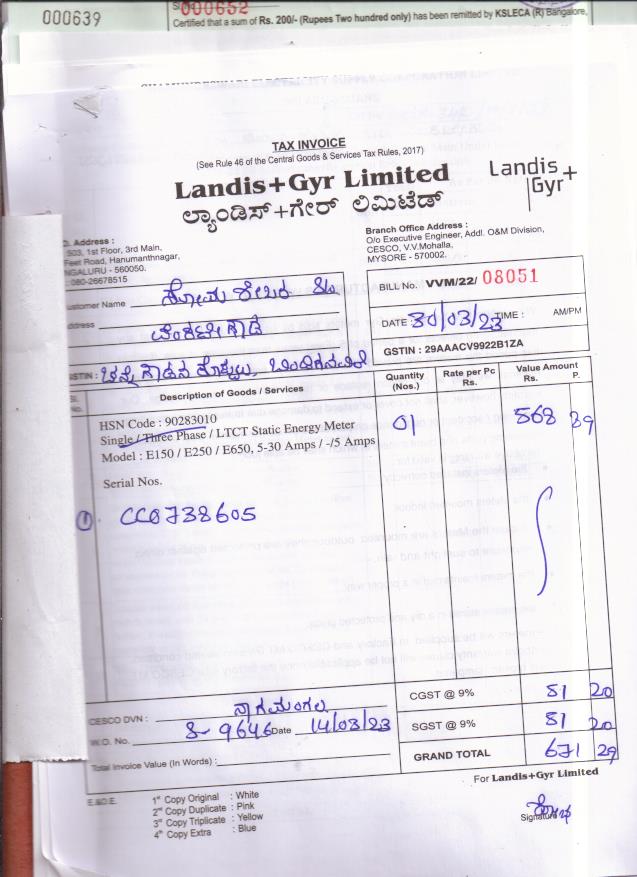 000639
000652
Certified that a sum of Rs. 200/- (Rupees Two hundred only) has been remitted by KSLECA (R) Bangalore,
TAX INVOICE
(See Rule 46 of the Central Goods & Services Tax Rules, 2017)
Landis+Gyr Limited
ಲ್ಯಾಂಡಿಸ್+ಗೇರ್ ಲಿಮಿಟೆಡ್
Landis+
Gyr
Address :
503, 1st Floor, 3rd Main,
Feet Road, Hanumanthnagar,
NGALURU - 560050.
: 080-26678515
Branch Office Address :
O/o Executive Engineer, Addl. O&M Division,
CESCO, V.V.Mohalla,
MYSORE - 570002.
ustomer Name ಸೋಮಶೇಖರ S/o
ddress ವೆಂಕಟೇಗೌಡ
GSTIN :
BILL No. VVM/22/ 08051
DATE 30/03/23 TIME : AM/PM
GSTIN : 29AAACV9922B1ZA
Sl. No. Description of Goods / Services Quantity (Nos.) Rate per Pc Rs. Value Amount Rs. P.
HSN Code : 90283010
Single / Three Phase / LTCT Static Energy Meter 01 568 39
Model : E150 / E250 / E650, 5-30 Amps / -/5 Amps
Serial Nos.
1 CC0738605
CESCO DVN : ನಾಗಮಂಗಲ
W.O. No. 8-9646 Date 14/03/23
Total Invoice Value (In Words) :
CGST @ 9% 51 20
SGST @ 9% 51 20
GRAND TOTAL 671 29
For Landis+Gyr Limited
Signature
E.&O.E.
1st Copy Original : White
2nd Copy Duplicate : Pink
3rd Copy Triplicate : Yellow
4th Copy Extra : Blue